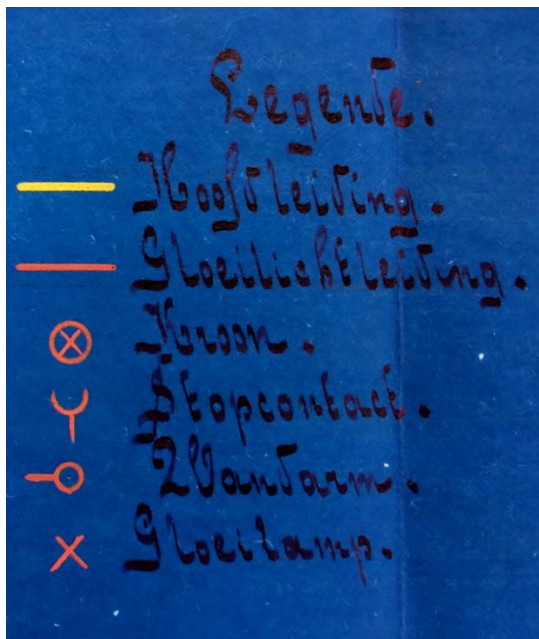 Legende.
Hoofdleiding.
Gloeilichtleiding.
Kroon.
Stopcontact.
Wandarm.
Gloeilamp.